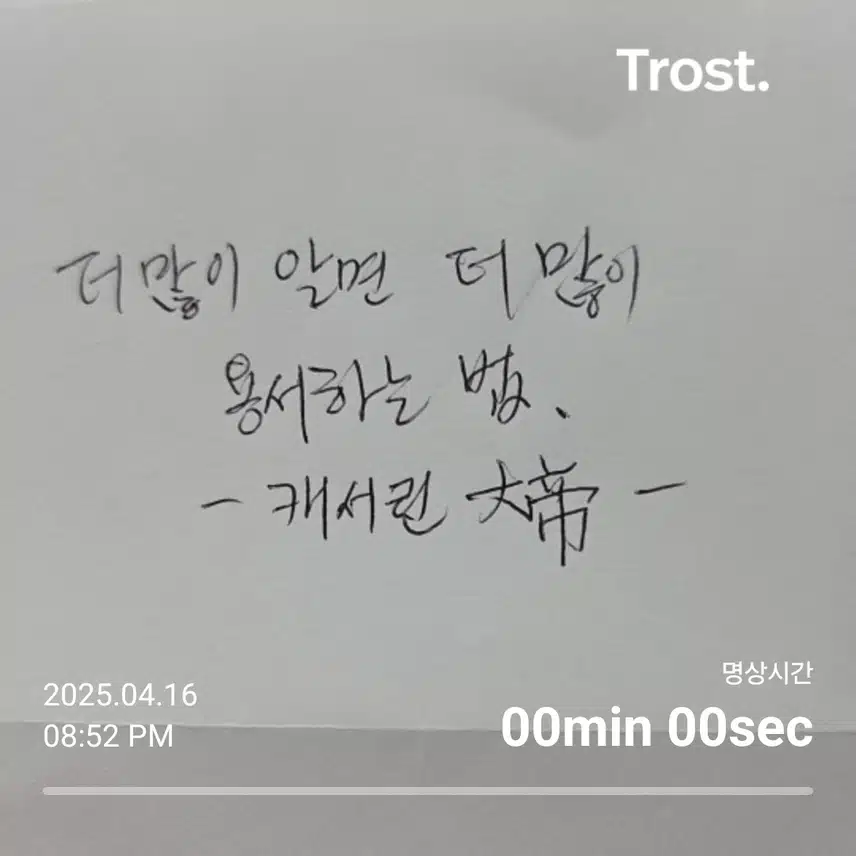 Trost.
더 많이 알면 더 많이
용서하는 법.
- 캐서린 大帝 -
명상시간
2025.04.16
00min 00sec
08:52 PM